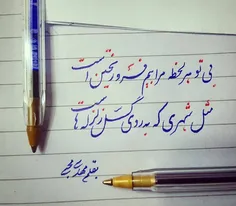 بی تو هر لحظه مرا بیم فرو ریختن است
مثل شهری که به روی گسل زلزله هاست
بقلم